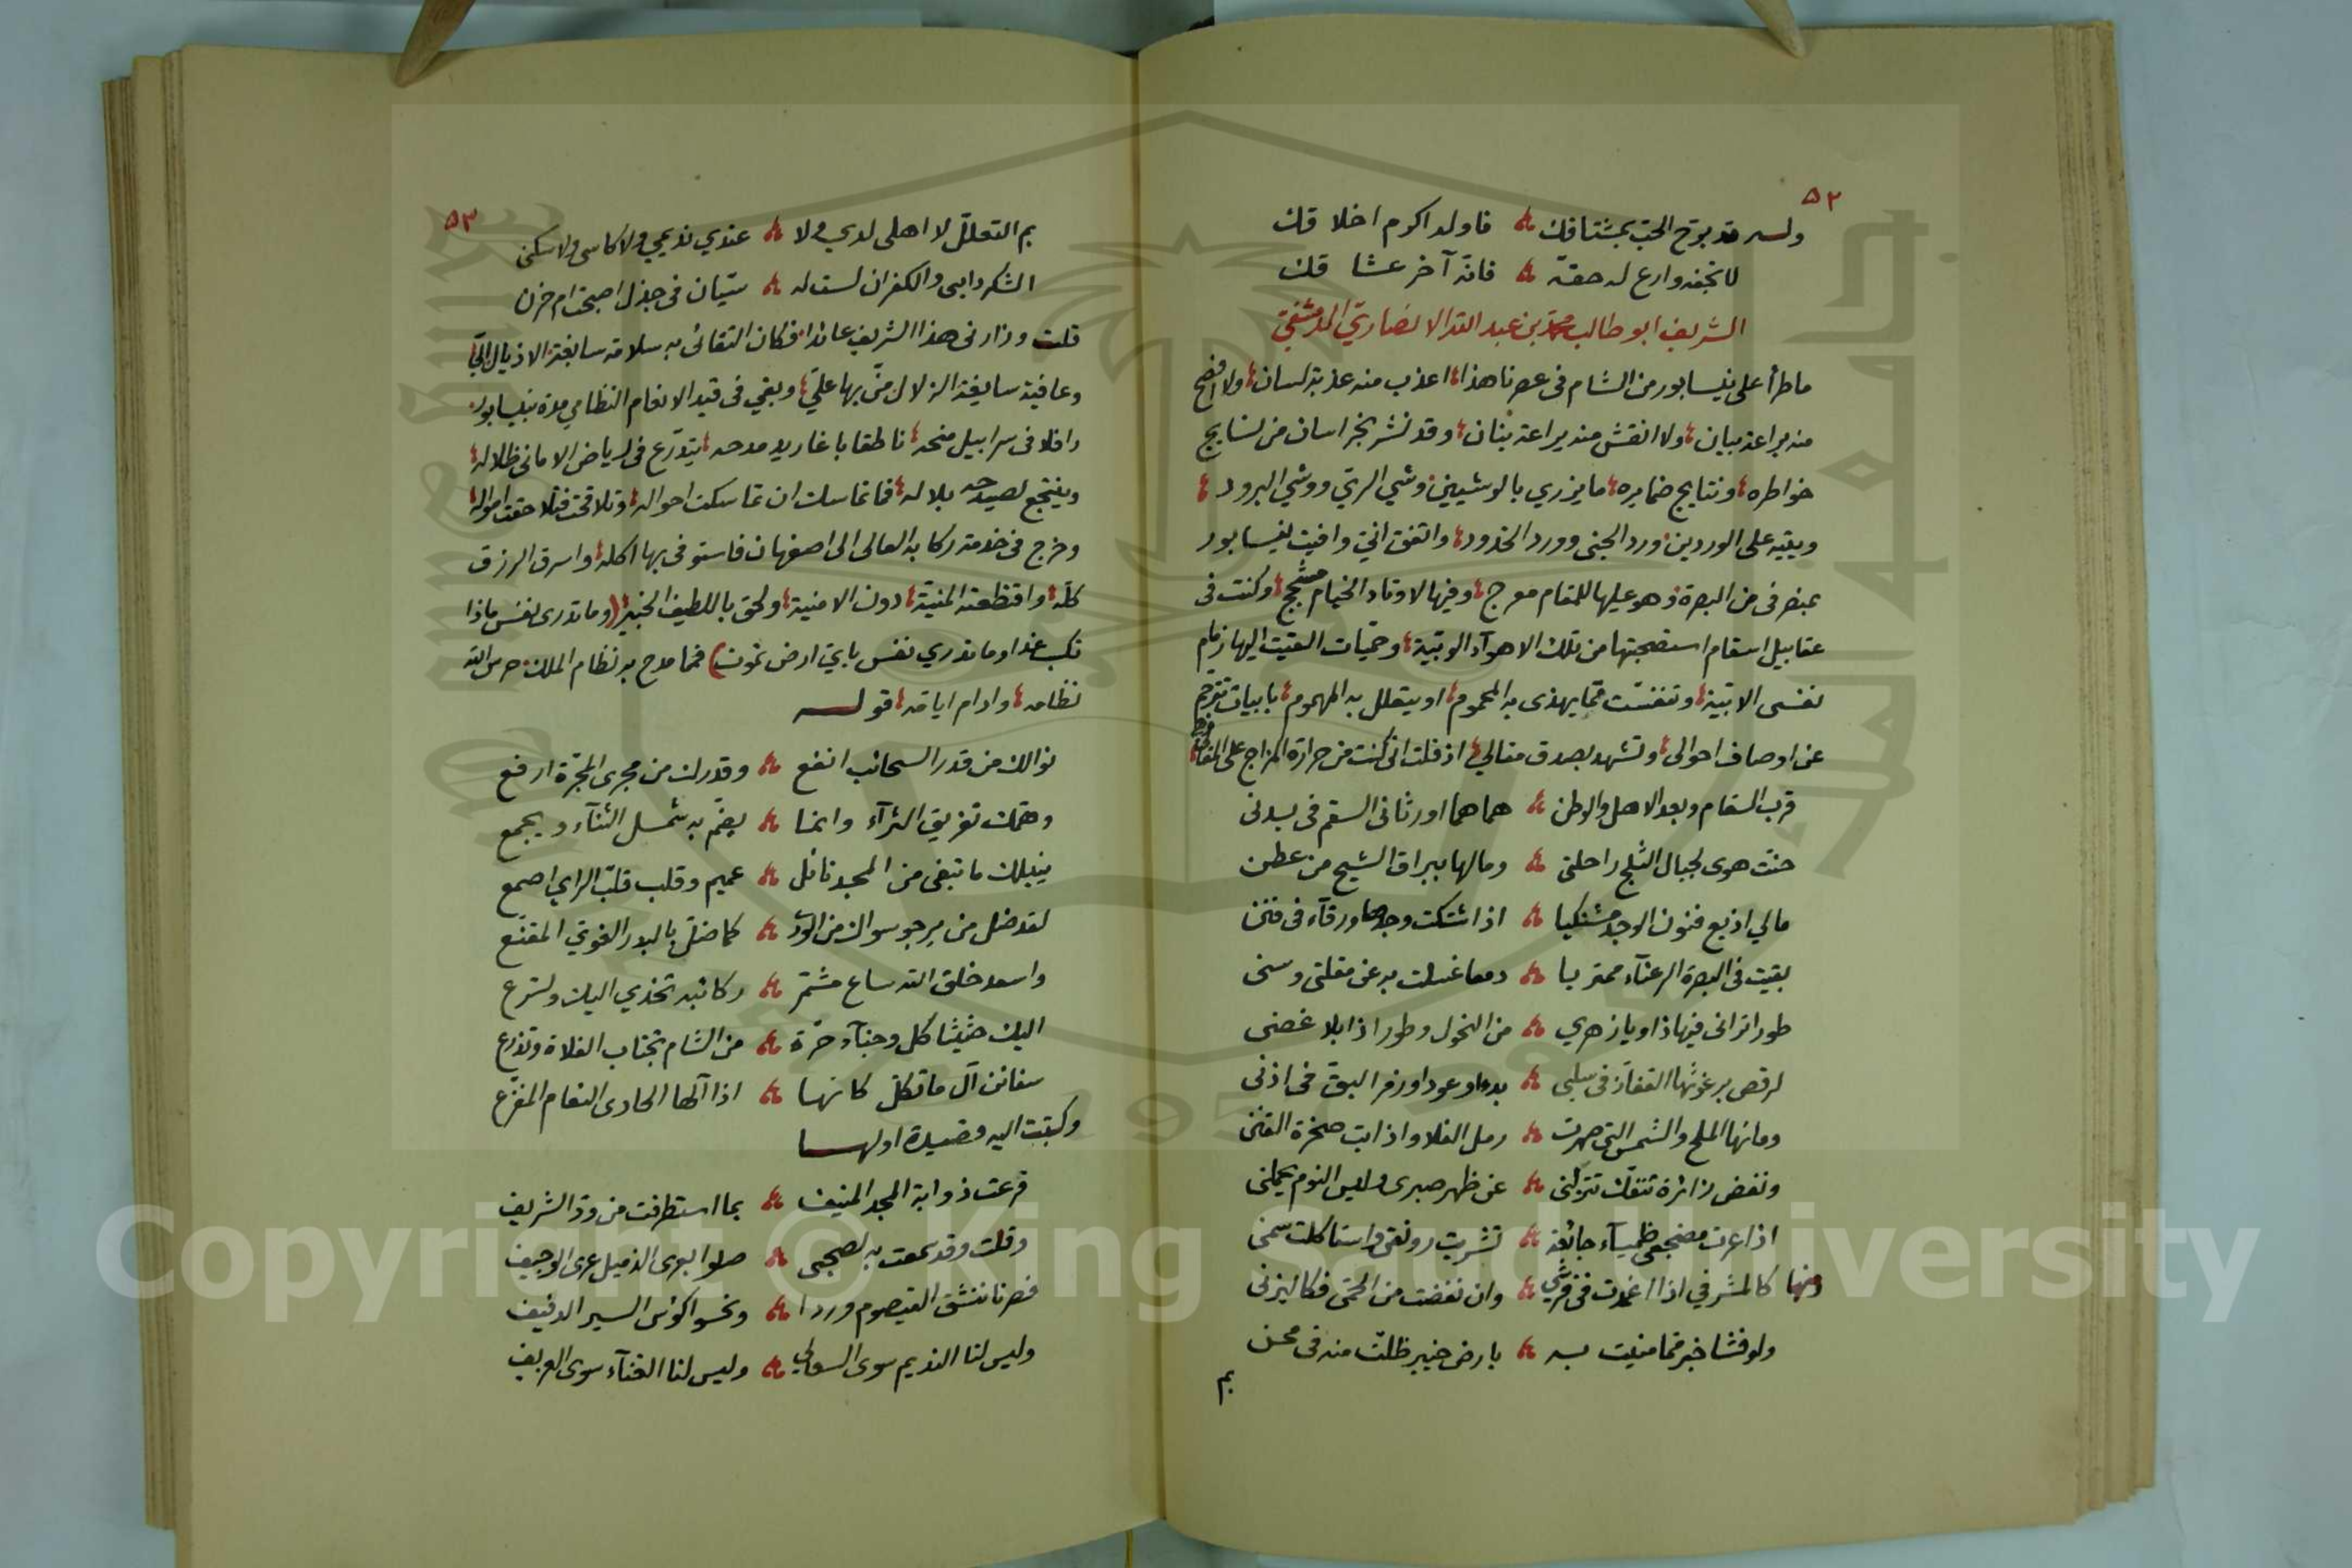 ٥٢
وله قد برّح الحبّ بمشتاقك ؞ فاوله اكرم اخلاقك
لا تجفه وارع له حقّه ؞ فانّه آخر عشاقك
الشريف ابو طالب محمد بن عبد الله الانصاريّ الدمشقيّ
ما طرأ على نيسابور من الشام فى عصرنا هذا اعذب منه عذبة لسان ولا افصح
منه براعة بيان ولا انقش منه يراعة بنان وقد نشر بخراسان من نسايج
خواطره ونتايج ضمايره ما يزري بالوشيين وشي الريّ ووشي البرود
ويتيه على الوردين ورد الجنى وورد الخدود واتفق انّي وافيت نيسابور
منصرفى من البصرة وهو عليها للمقام معرج وفيها لاوتاد الخيام مشجج وكنت فى
عقابيل اسقام استصحبتها من تلك الاهوآء الوبية وحمّيات القيت اليها زمام
نفسى الابيّة وتنفست ممّا يهذى به المحموم او يتعلل به المهموم بابيات تترجم
عن اوصاف احوالى وتشهد بصدق مقالي اذ قلت انى كنت من حرارة المزاج على
قرب السقام وبعد الاهل والوطن ؞ هما هما اورثانى السقم فى بدنى
حنّت هوى لجبال الثلج راحلتى ؞ ومالها ببراق الشيح من عطن
مالي اذيع فنون الوجد مشتكيا ؞ اذا اشتكت وجدها ورقآء فى فنن
بقيت فى البصرة الرعنآء ممتريا ؞ دمعا غسلت به عن مقلتى وسنى
طورا ترانى فيها ذاويا زهري ؞ من النحول وطورا ذابلا غصنى
لرقص برغوثها القفاز فى سلبى ؞ بدءا وعودا وزمر البق فى اذنى
ومائها الملح والشمس التى صهرت ؞ رمل الفلا واذابت صخرة القنن
ونفض زائرة تنفك تنزلنى ؞ عن ظهر صبرى وليس النوم يحملنى
اذا عرت مضجعى ظميآء جائعة ؞ تشربت رونقى واستاكلت سمنى
ومنها كالمشرفي اذا اغمدت فى فرشي ؞ وان نفضت من الحمّى فكاليزنى
ولو فشا خبر ممّا منيت به ؞ بارض خيبر ظلّت منه فى محن
بم
٥٣
بم التعلل لا اهلى لدي ولا ؞ عندي نديمي ولا كاسى ولا سكنى
الشكر دابى والكفران لست له ؞ سيّان فى جذل اصبحت ام حزن
قلت وزارنى هذا الشريف عائدا فكان التقائى به سلامة سابغة الاذيال اليّ
وعافية سايغة الزلال منّ بها عليّ وبقي فى قيد الانعام النظامي مدة بنيسابور
رافلا فى سرابيل منحه ناطقا باغاريد مدحه يتدرّع فى رياض الامانى ظلاله
وينتجع لصيدحه بلاله فما تماسك ان تماسكت احواله وتلاقحت فتلاحقت امواله
وخرج فى خدمة ركابه العالى الى اصفهان فاستوفى بها اكله واسرق الرزق
كلّه واقتطعته المنيّة دون الامنية ولحق باللطيف الخبير (وما تدرى نفس ماذا
تكسب غدا وما تدري نفس بايّ ارض تموت) فمما مدح به نظام الملك حرس الله
نظامه وادام ايامه قوله
نوالك من قدر السحائب انفع ؞ وقدرك من مجرى المجرّة ارفع
وهمّك تفريق الثرآء وانما ؞ يضمّ به شمل الثنآء ويجمع
ينيلك ما تبغى من المجد نائل ؞ عميم وقلب قلّب الراي اصمع
لقد ضل من يرجو سواك من الورى ؞ كما ضلّ بالبدر الغويّ المقنّع
واسعد خلق الله ساع مشمّر ؞ ركائبه تخدي اليك وتسرع
اليك حثيثا كل وجنآء حرّة ؞ من الشام تجتاب الفلاة وتذرع
سفائن آل ما تكلّ كانها ؞ اذا آلها الحادى النعام المفزّع
وكتبت اليه قصيدة اولها
فرعت ذوابة المجد المنيف ؞ بما استطرفت من ودّ الشريف
وقلت وقد سمعت به لصحبى ؞ صلوا لبرى الذميل عرى الوجيف
فصرنا ننشق القيصوم وردا ؞ ونحسو اكؤس السير الدفيف
وليس لنا النديم سوى السعالي ؞ وليس لنا الغنآء سوى العزيف